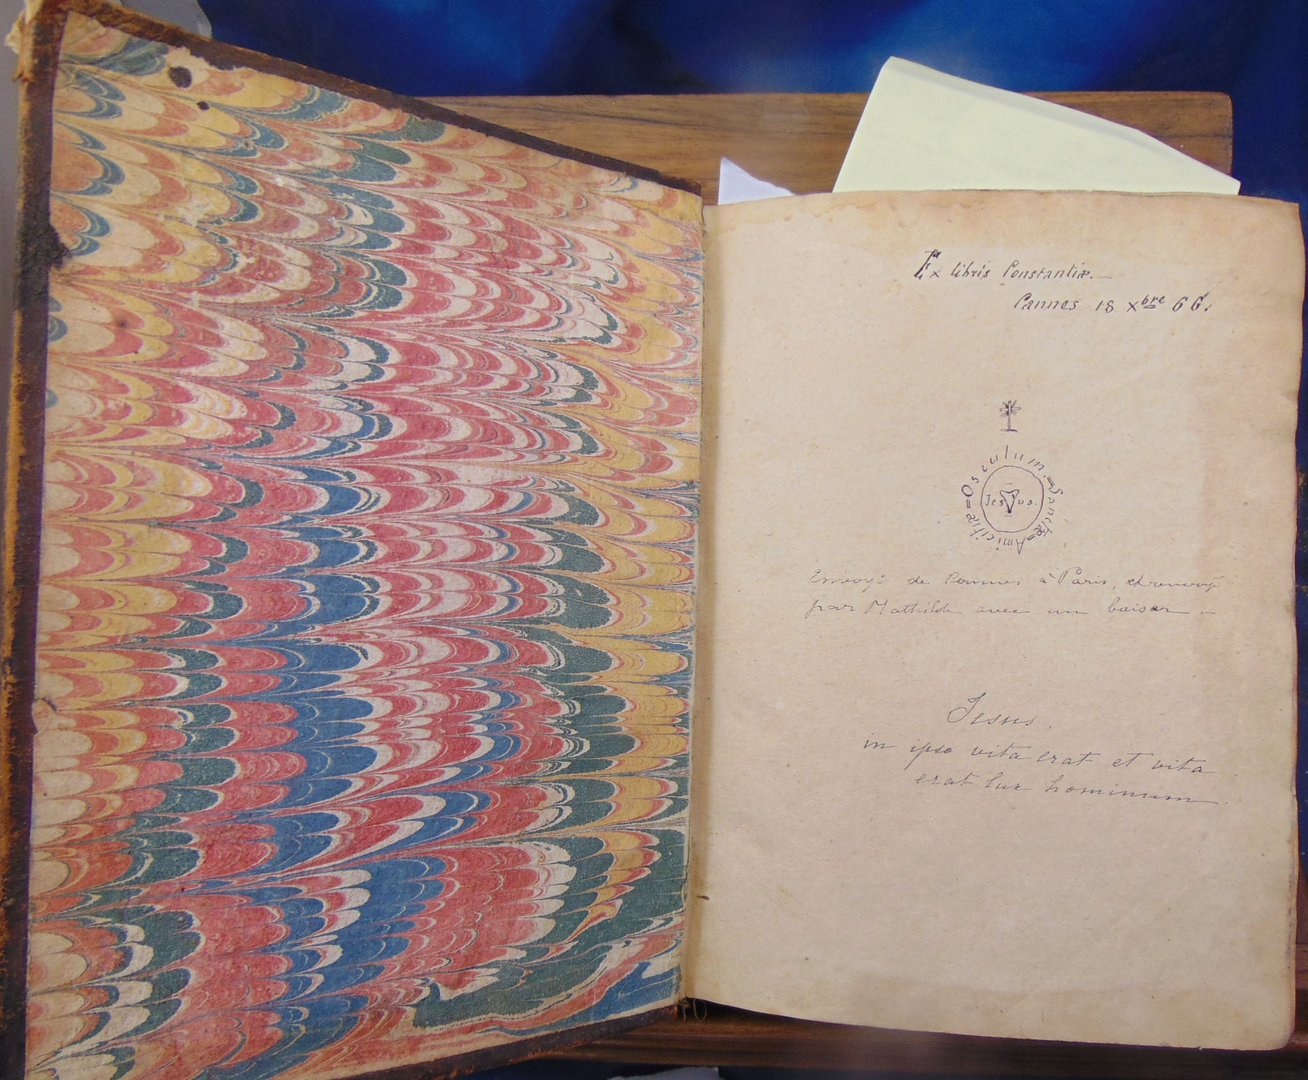 Ex libris Constantiæ.—
Cannes 18 Xbre 66.
Osculum = Sanctæ = Amicitiæ =
Jesus.
Envoyé de Cannes à Paris, et renvoyé
par Mathilde avec un baiser —
Jesus.
in ipso vita erat et vita
erat lux hominum